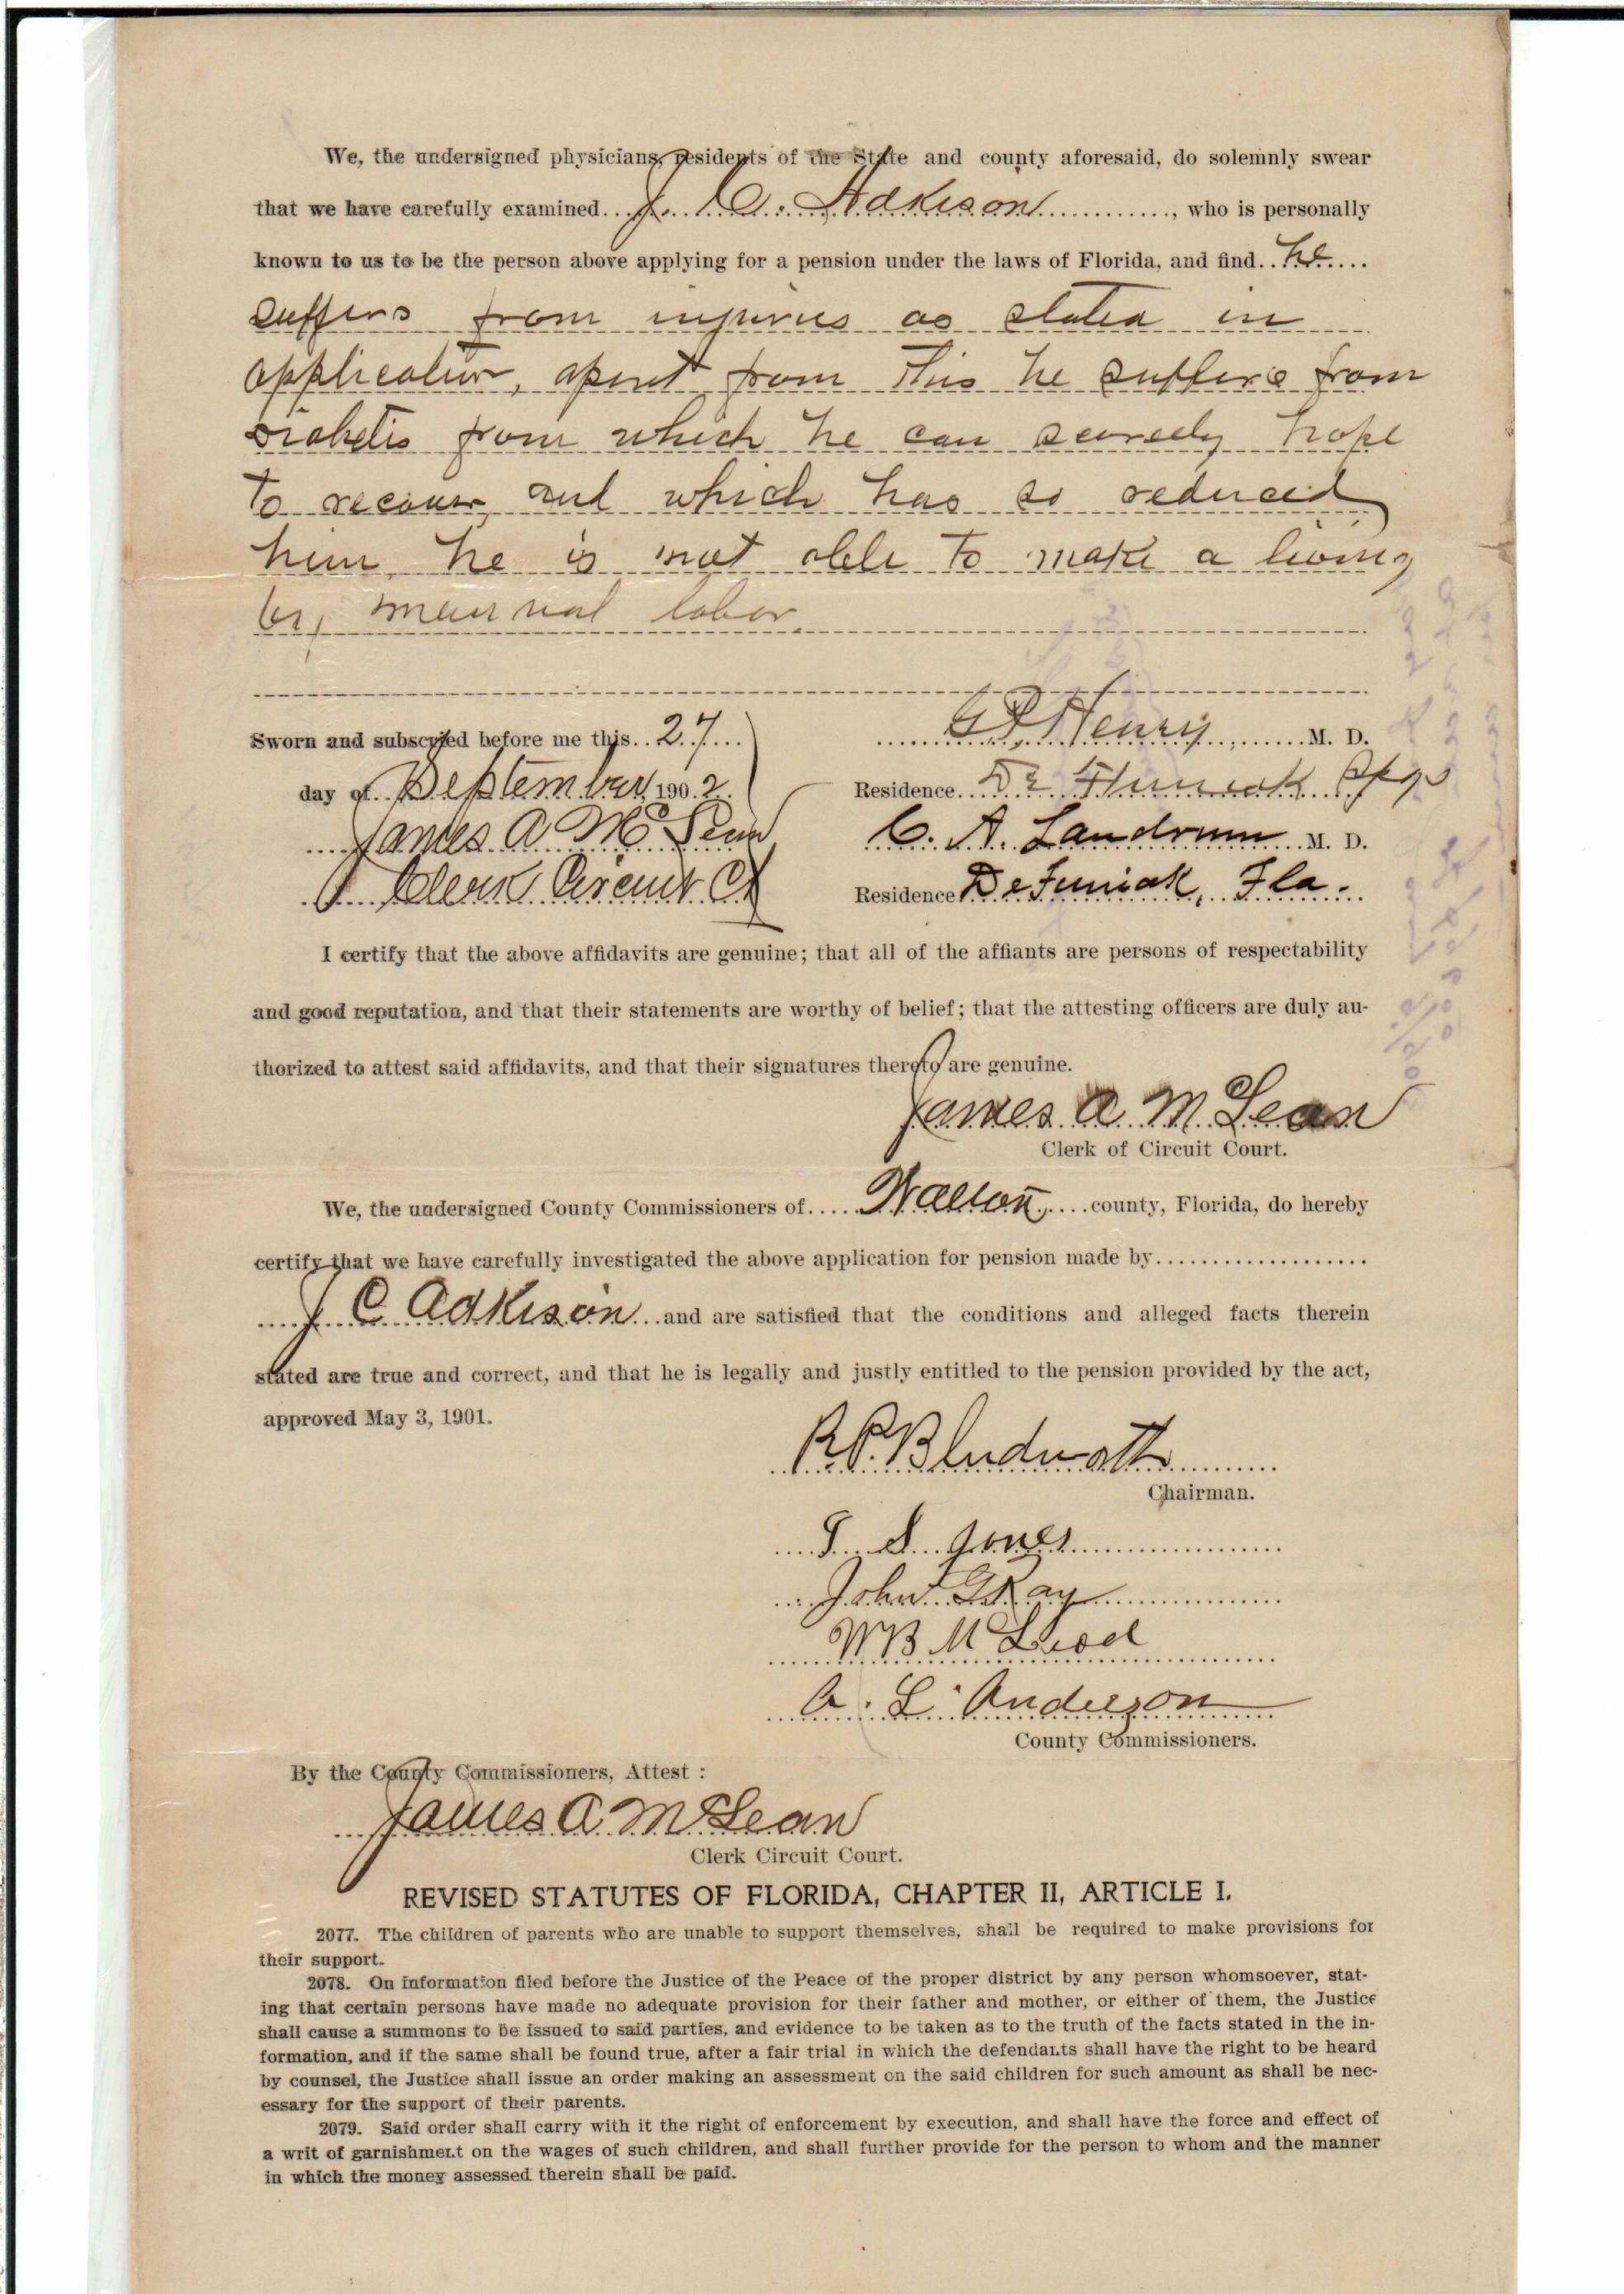 We, the undersigned physicians, residents of the State and county aforesaid, do solemnly swear
that we have carefully examined J. C. Adkison, who is personally
known to us to be the person above applying for a pension under the laws of Florida, and find he
suffers from injuries as stated in
application, apart from this he suffers from
diabetis from which he can scarsely hope
to recover, and which has so reduced
him, he is not able to make a living
by manual labor.
Sworn and subscribed before me this 27
G P Henry M. D.
day of September 1902
Residence De Funiak Spgs
James A McLean
C. A. Landrum M. D.
Clerk Circuit Ct
Residence DeFuniak, Fla.
I certify that the above affidavits are genuine; that all of the affiants are persons of respectability
and good reputation, and that their statements are worthy of belief; that the attesting officers are duly au-
thorized to attest said affidavits, and that their signatures thereto are genuine.
James A McLean
Clerk of Circuit Court.
We, the undersigned County Commissioners of Walton county, Florida, do hereby
certify that we have carefully investigated the above application for pension made by
J C Adkison and are satisfied that the conditions and alleged facts therein
stated are true and correct, and that he is legally and justly entitled to the pension provided by the act,
approved May 3, 1901.
R.P. Bludworth
Chairman.
T S Jones
John G Ray
W B McLeod
A. L. Anderson
County Commissioners.
By the County Commissioners, Attest :
James A. McLean
Clerk Circuit Court.
REVISED STATUTES OF FLORIDA, CHAPTER II, ARTICLE I.
2077. The children of parents who are unable to support themselves, shall be required to make provisions for
their support.
2078. On information filed before the Justice of the Peace of the proper district by any person whomsoever, stat-
ing that certain persons have made no adequate provision for their father and mother, or either of them, the Justice
shall cause a summons to be issued to said parties, and evidence to be taken as to the truth of the facts stated in the in-
formation, and if the same shall be found true, after a fair trial in which the defendants shall have the right to be heard
by counsel, the Justice shall issue an order making an assessment on the said children for such amount as shall be nec-
essary for the support of their parents.
2079. Said order shall carry with it the right of enforcement by execution, and shall have the force and effect of
a writ of garnishment on the wages of such children, and shall further provide for the person to whom and the manner
in which the money assessed therein shall be paid.